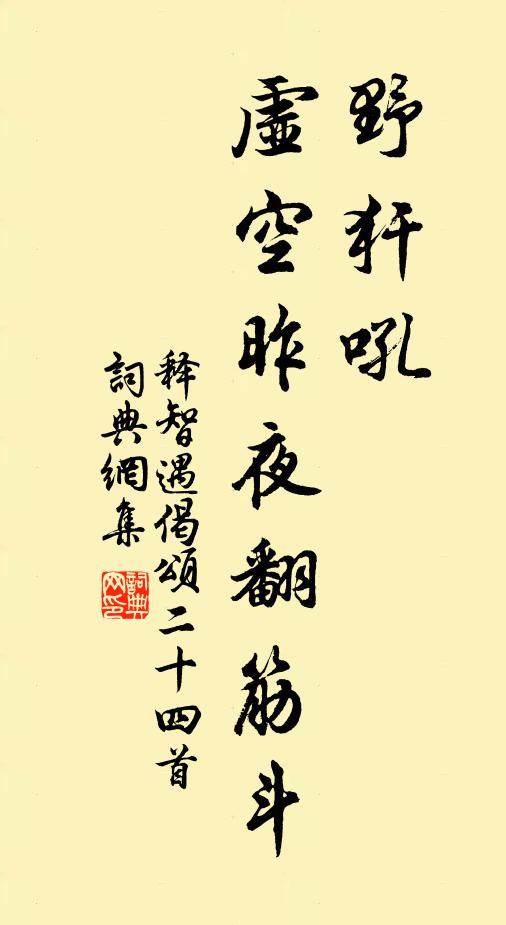 野犴吼
虛空昨夜翻筋斗
释智遇偈頌二十四首
詞典網集
詞典网印